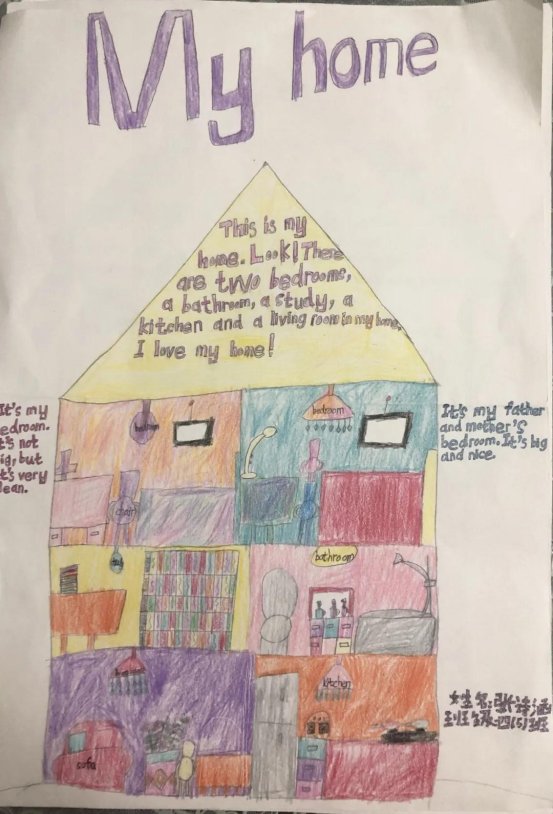 My home
This is my
home. Look! There
are two bedrooms,
a bathroom, a study, a
kitchen and a living room in my home.
I love my home!
It's my
edroom.
t's not
ig, but
t's very
lean.
It's my father
and mother's
bedroom. It's big
and nice.
bedroom
bedroom
chair
bathroom
kitchen
sofa
姓名:张诗涵
班级:四(5)班